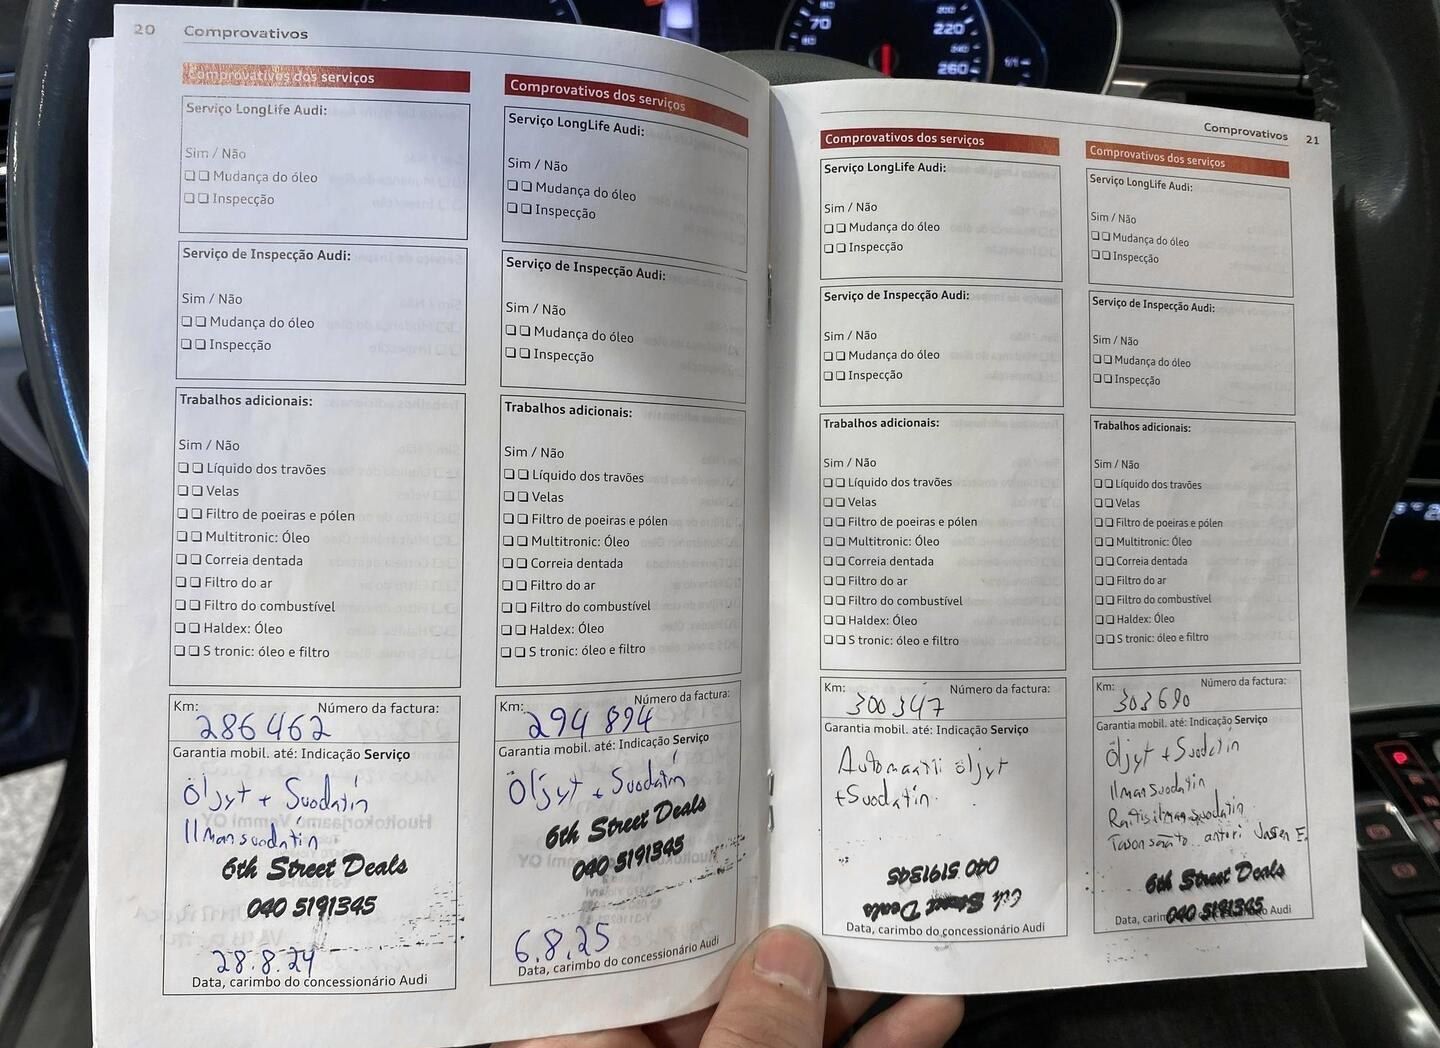 20 Comprovativos
Comprovativos dos serviços
Serviço LongLife Audi:
Sim / Não
Mudança do óleo
Inspecção
Serviço de Inspecção Audi:
Sim / Não
Mudança do óleo
Inspecção
Trabalhos adicionais:
Sim / Não
Líquido dos travões
Velas
Filtro de poeiras e pólen
Multitronic: Óleo
Correia dentada
Filtro do ar
Filtro do combustível
Haldex: Óleo
S tronic: óleo e filtro
Km: Número da factura:
286462
Garantia mobil. até: Indicação Serviço
Öljyt + Suodatin
Ilmansuodatin
6th Street Deals
040 5191345
28.8.24
Data, carimbo do concessionário Audi
Comprovativos dos serviços
Serviço LongLife Audi:
Sim / Não
Mudança do óleo
Inspecção
Serviço de Inspecção Audi:
Sim / Não
Mudança do óleo
Inspecção
Trabalhos adicionais:
Sim / Não
Líquido dos travões
Velas
Filtro de poeiras e pólen
Multitronic: Óleo
Correia dentada
Filtro do ar
Filtro do combustível
Haldex: Óleo
S tronic: óleo e filtro
Km: Número da factura:
294 894
Garantia mobil. até: Indicação Serviço
Öljyt + Suodatin
6th Street Deals
040 5191345
6.8.25
Data, carimbo do concessionário Audi
Comprovativos 21
Comprovativos dos serviços
Serviço LongLife Audi:
Sim / Não
Mudança do óleo
Inspecção
Serviço de Inspecção Audi:
Sim / Não
Mudança do óleo
Inspecção
Trabalhos adicionais:
Sim / Não
Líquido dos travões
Velas
Filtro de poeiras e pólen
Multitronic: Óleo
Correia dentada
Filtro do ar
Filtro do combustível
Haldex: Óleo
S tronic: óleo e filtro
Km: Número da factura:
300347
Garantia mobil. até: Indicação Serviço
Automaatti öljyt
+Suodatin
040 5191345
6th Street Deals
Data, carimbo do concessionário Audi
Comprovativos dos serviços
Serviço LongLife Audi:
Sim / Não
Mudança do óleo
Inspecção
Serviço de Inspecção Audi:
Sim / Não
Mudança do óleo
Inspecção
Trabalhos adicionais:
Sim / Não
Líquido dos travões
Velas
Filtro de poeiras e pólen
Multitronic: Óleo
Correia dentada
Filtro do ar
Filtro do combustível
Haldex: Óleo
S tronic: óleo e filtro
Km: Número da factura:
303690
Garantia mobil. até: Indicação Serviço
Öljyt + Suodatin
Ilmansuodatin
Raitisilmansuodatin
Tasonsäätö anturi Vasen E.
6th Street Deals
040 5191345
Data, carimbo do concessionário Audi
70
220
260